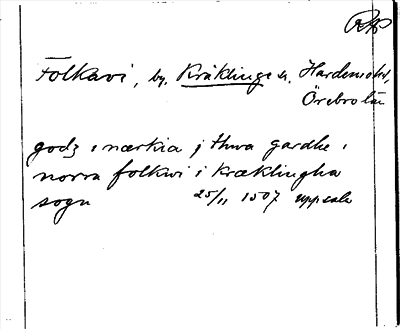 RAP
Folkavi, by. Kräklinge sn. Hardemo hd,
Örebro län
godz i nærkia j thwa gardhe i
norra folkwi i kræklingha
sogn 25/11 1507 uppsala